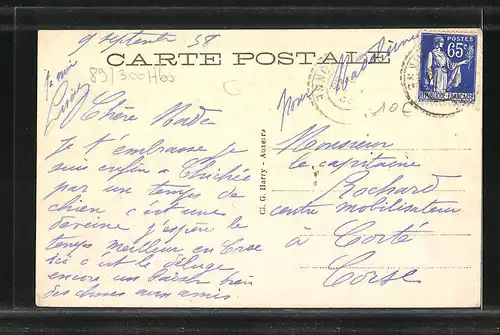 9 septembre 38
CARTE POSTALE
89/300/Hbs
C
ta mie
pour Madeleine
POSTES
65c
10€
Chère Made
Je t'embrasse je
suis enfin à Chichée
par un temps de
chien c'est une
déveine j'espère le
temps meilleur en Corse
ici c'est le déluge
encore un baiser bien
des choses aux amis.
Cl. G. Harry - Auxerre
Monsieur
le capitaine
Rochard
centre mobilisateur
à Corté
Corse